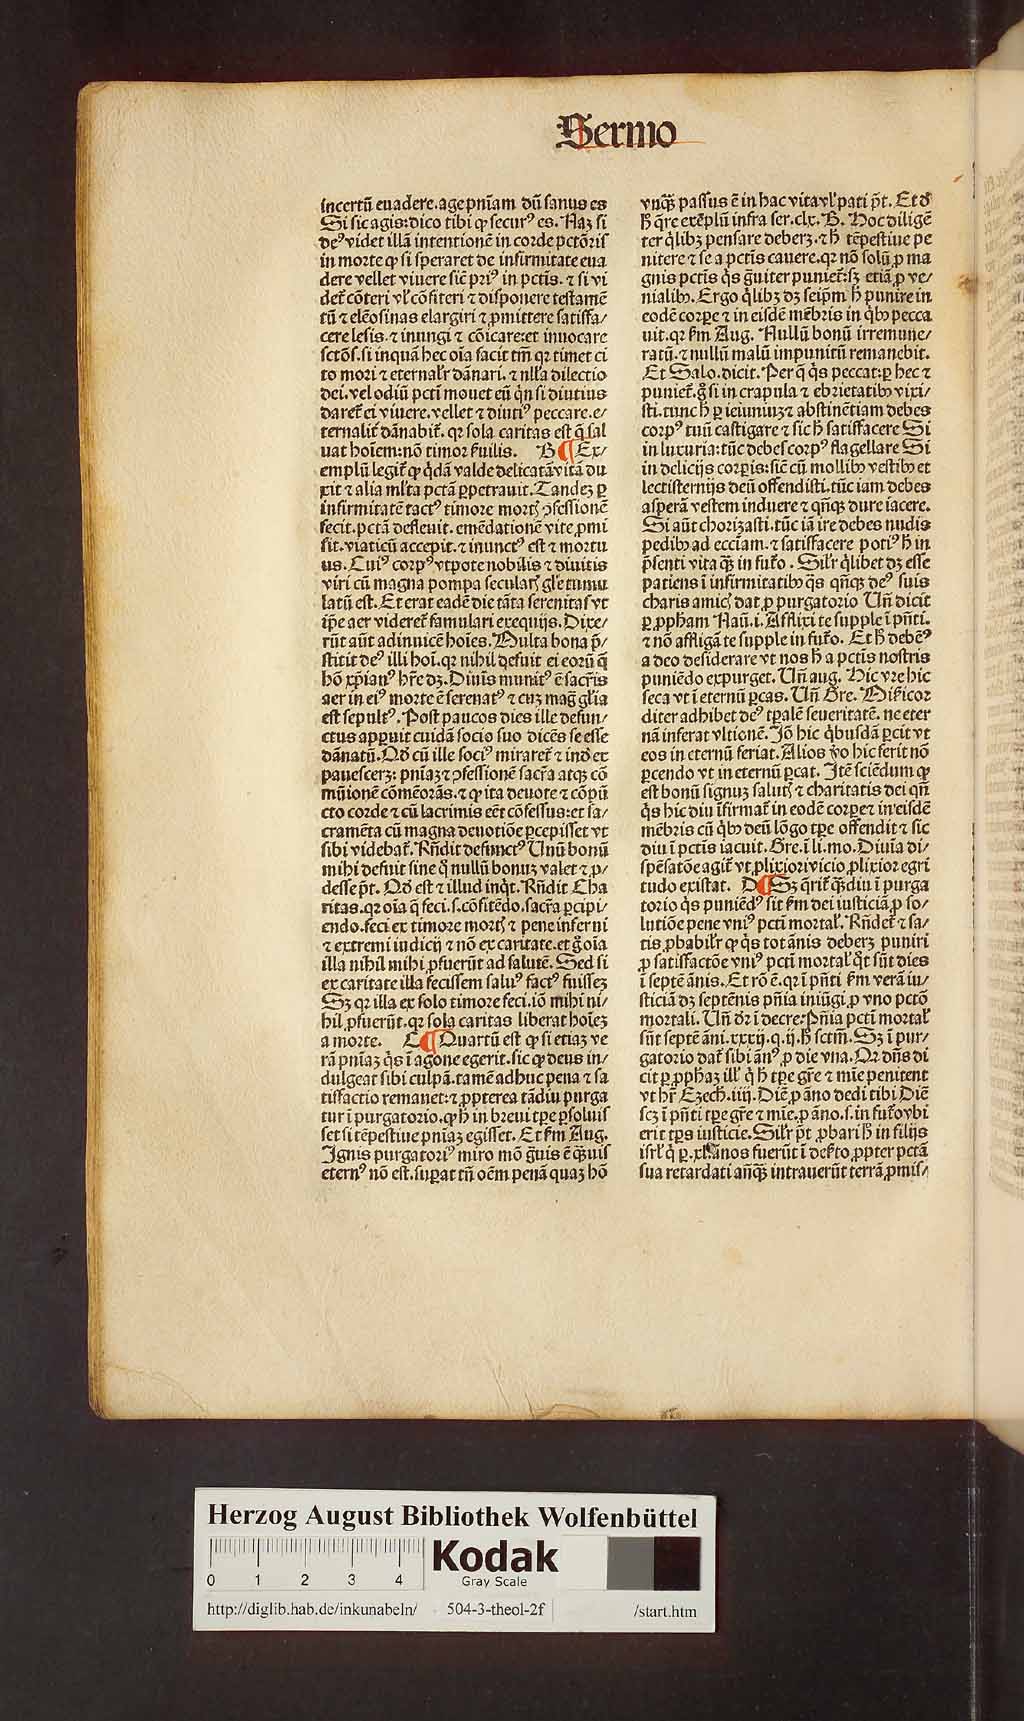 Sermo
incertū euadere.age pnīam dū sanus es
Si sic agis:dico tibi ꝙ secur⁹ es. Naꝫ si
de⁹ videt illā intentionē in corde pctōris
in morte ꝙ si speraret de infirmitate eua
dere vellet viuere sic̄ pri⁹ in pctīs. ⁊ si vi
det̄ cōteri vl̓ cōfiteri ⁊ disponere testamē
tū ⁊ elēosinas elargiri ⁊ ꝓmittere satiffa/
cere lesis.⁊ inungi ⁊ cōicare:et inuocare
sctōs.si inquā hec oīa facit tm̄ qꝛ timet ci
to mori ⁊ eternalr̄ dānari.⁊ nll̓a dilectio
dei.vel odiū pctī mouet eū qͥn si diutius
daret̄ ei viuere.vellet ⁊ diuti⁹ peccare.e/
ternalit̄ dānabit̄. qꝛ sola caritas est q̄ sal
uat hoīem:nō timor ẜuilis. B ¶ Ex/
emplū legit̄ ꝙ qͥdā valde delicatā vitā du
xit ⁊ alia ml̓ta pctā ꝑpetrauit.Tandeꝫ ꝑ
infirmitatē tact⁹ timore mortꝭ ꝯfessionē
fecit.pctā defleuit.emēdationē vite ꝓmi
sit.viaticū accepit.⁊ inunct⁹ est ⁊ mortu
us. Cui⁹ corp⁹ vtpote nobilis ⁊ diuitis
viri cū magna pompa secularꝭ gl̓e tumu
latū est. Et erat eadē die tāta serenitas vt
ip̄e aer videret̄ famulari exequijs. Dixe/
rūt aūt adinuicē hoīes. Multa bona p̄/
stitit de⁹ illi hoī.qꝛ nihil defuit ei eorū q̄
hō xp̄ian⁹ hr̄e dꝫ. Diuīs munit⁹ ē sacr̄is
aer in ei⁹ morte ē serenat⁹ ⁊ cuꝫ mag̓ gl̓ia
est sepult⁹. Post paucos dies ille defun/
ctus apꝑuit cuidā socio suo dicēs se esse
dānatū. Qd̓ cū ille soci⁹ miraret̄ ⁊ indͤ ex
pauescerꝫ: pnīaꝫ ⁊ ꝯfessionē sacr̄a atqꝫ cō
mūionē cōmēorās.⁊ ꝙ ita deuote ⁊ cōpū
cto corde ⁊ cū lacrimis eēt cōfessus:et sa/
cramēta cū magna deuotiōe ꝑcepisset vt
sibi videbat̄. Rn̄dit defunct⁹ Unū bonū
mihi defuit sine qͦ nullū bonuꝫ valet ⁊ ꝓ/
desse pōt. Qd̓ est ⁊ illud inqͥt. Rn̄dit Cha
ritas.qꝛ oīa q̄ feci.s.cōfitēdo.sacr̄a ꝑcipi/
endo.feci ex timore mortꝭ ⁊ pene inferni
⁊ extremi iudicij ⁊ nō ex caritate.et g̓ oīa
illa nihil mihi ꝓfuerūt ad salutē. Sed si
ex caritate illa fecissem salu⁹ fact⁹ fuisseꝫ
Sꝫ qꝛ illa ex solo timore feci.iō mihi ni/
hil ꝓfuerūt.qꝛ sola caritas liberat hoīeꝫ
a morte. C ¶ Quartū est ꝙ si etiaꝫ ve
rā pnīaꝫ qͥs ī agone egerit.sic ꝙ deus in/
dulgeat sibi culpā.tamē adhuc pena ⁊ sa
tiffactio remanet:⁊ ꝓpterea tādiu purga
tur ī purgatorio.ꝙ h̓ in breui tꝑe ꝑsoluis
set si tēpestiue pnīaꝫ egisset. Et ẜm Aug.
Ignis purgatori⁹ miro mō g̓uis ē qͣꝫuis
etern⁹ nō est.suꝑat tn̄ oēm penā quaꝫ hō
vnqͣꝫ passus ē in hac vita vl̓ pati pōt. Et dͤ
h̓ qͥre exēplū infra ser.clx. B. Hoc diligē
ter qͥlibꝫ pensare deberꝫ.⁊ h̓ tēpestiue pe
nitere ⁊ se a pctīs cauere.qꝛ nō solū ꝓ ma
gnis pctīs qͥs g̓uiter puniet̄:sꝫ etiā ꝓ ve/
nialibꝰ. Ergo qͥlibꝫ dꝫ seip̄m h̓ punire in
eodē corꝑe ⁊ in eisdē mēbris in qͥbꝰ pecca
uit.qꝛ ẜm Aug. Nullū bonū irremune/
ratū.⁊ nullū malū impunitū remanebit.
Et Salo.dicit. Per q̄ qͥs peccat:ꝑ hec ⁊
puniet̄.g̓ si in crapula ⁊ ebrietatibꝰ vixi/
sti.tunc h̓ ꝑ ieiuniuꝫ ⁊ abstinētiam debes
corp⁹ tuū castigare ⁊ sic h̓ satiffacere Si
in luxuria:tūc debes corp⁹ flagellare Si
in delicijs corꝑis:sic̄ cū mollibꝰ vestibꝰ et
lectisternijs deū offendisti.tūc iam debes
asꝑam vestem induere ⁊ qn̄qꝫ dure iacere.
Si aūt chorizasti.tūc iā ire debes nudis
pedibꝰ ad ecciam.⁊ satiffacere poti⁹ h̓ in
p̄senti vita qͣꝫ in fut̓o. Sil̓r qͥlibet dꝫ esse
patiens ī infirmitatibꝰ qͣs qn̄qꝫ de⁹ suis
charis amicꝭ dat ꝓ purgatorio Un̄ dicit
ꝑ ꝓpham Naū.i. Afflixi te supple ī pn̄ti.
⁊ nō affligā te supple in fut̓o. Et h̓ debē⁹
a deo desiderare vt nos h̓ a pctīs nostris
puniēdo expurget. Un̄ aug. Hic vre hic
seca vt ī eternū ꝑcas. Un̄ Gre. Mi̓icor
diter adhibet de⁹ tꝑalē seueritatē. ne eter
nā inferat vltionē. Iō hic qͥbusdā ꝑcit vt
eos in eternū feriat. Alios v̓o hic ferit nō
ꝑcendo vt in eternū ꝑcat. Itē sciēdum ꝙ
est bonū signuꝫ salutꝭ ⁊ charitatis dei qn̄
qͥs hic diu īfirmat̄ in eodē corꝑe ⁊ in eisdē
mēbris cū qͥbꝰ deū lōgo tꝑe offendit ⁊ sic
diu ī pctīs iacuit. Gre.ī li.mo. Diuīa di/
spēsatōe agit̄ vt ꝓlixiori vicio ꝓlixior egri
tudo existat. D ¶ Sꝫ qͥrit̄ qͣꝫdiu ī purga
torio qͥs puniēd⁹ sit ẜm dei iusticiā ꝓ so/
lutiōe pene vni⁹ pctī mortal̓. Rn̄det̄ ⁊ sa/
tis ꝓbabilr̄ ꝙ qͥs tot ānis deberꝫ puniri
ꝓ satiffactōe vni⁹ pctī mortal̓ qͦt sūt dies
ī septē ānis. Et rō ē.qꝛ ī pn̄ti ẜm verā iu/
sticiā dꝫ septēnis pnīa iniūgi ꝓ vno pctō
mortali. Un̄ dr̄ ī decre: Pn̄ia pctī mortal̓
sūt septē āni.xxxij.q.ij.h̓ sctm̄. Sꝫ ī pur/
gatorio dat̄ sibi ān⁹ ꝓ die vna. Qꝛ dn̄s di
cit ꝑ ꝓphaꝫ ill̓ qͥ h̓ tꝑe gr̄e ⁊ mīe penitent
vt hr̄ Ezech.iiij. Diē ꝓ āno dedi tibi Diē
scꝫ ī pn̄ti tꝑe gr̄e ⁊ mīe.ꝓ āno.s.in fut̓o vbi
erit tp̄s iusticie. Sil̓r pōt ꝓbari h̓ in filijs
isrl̓ qͥ ꝑ.xl.ānos fuerūt ī deẜto ꝓpter pctā
sua retardati an̄qͣꝫ intrauerūt terrā ꝓmis/
Herzog August Bibliothek Wolfenbüttel
0 1 2 3 4
Kodak
Gray Scale
http://diglib.hab.de/inkunabeln/ 504-3-theol-2f /start.htm